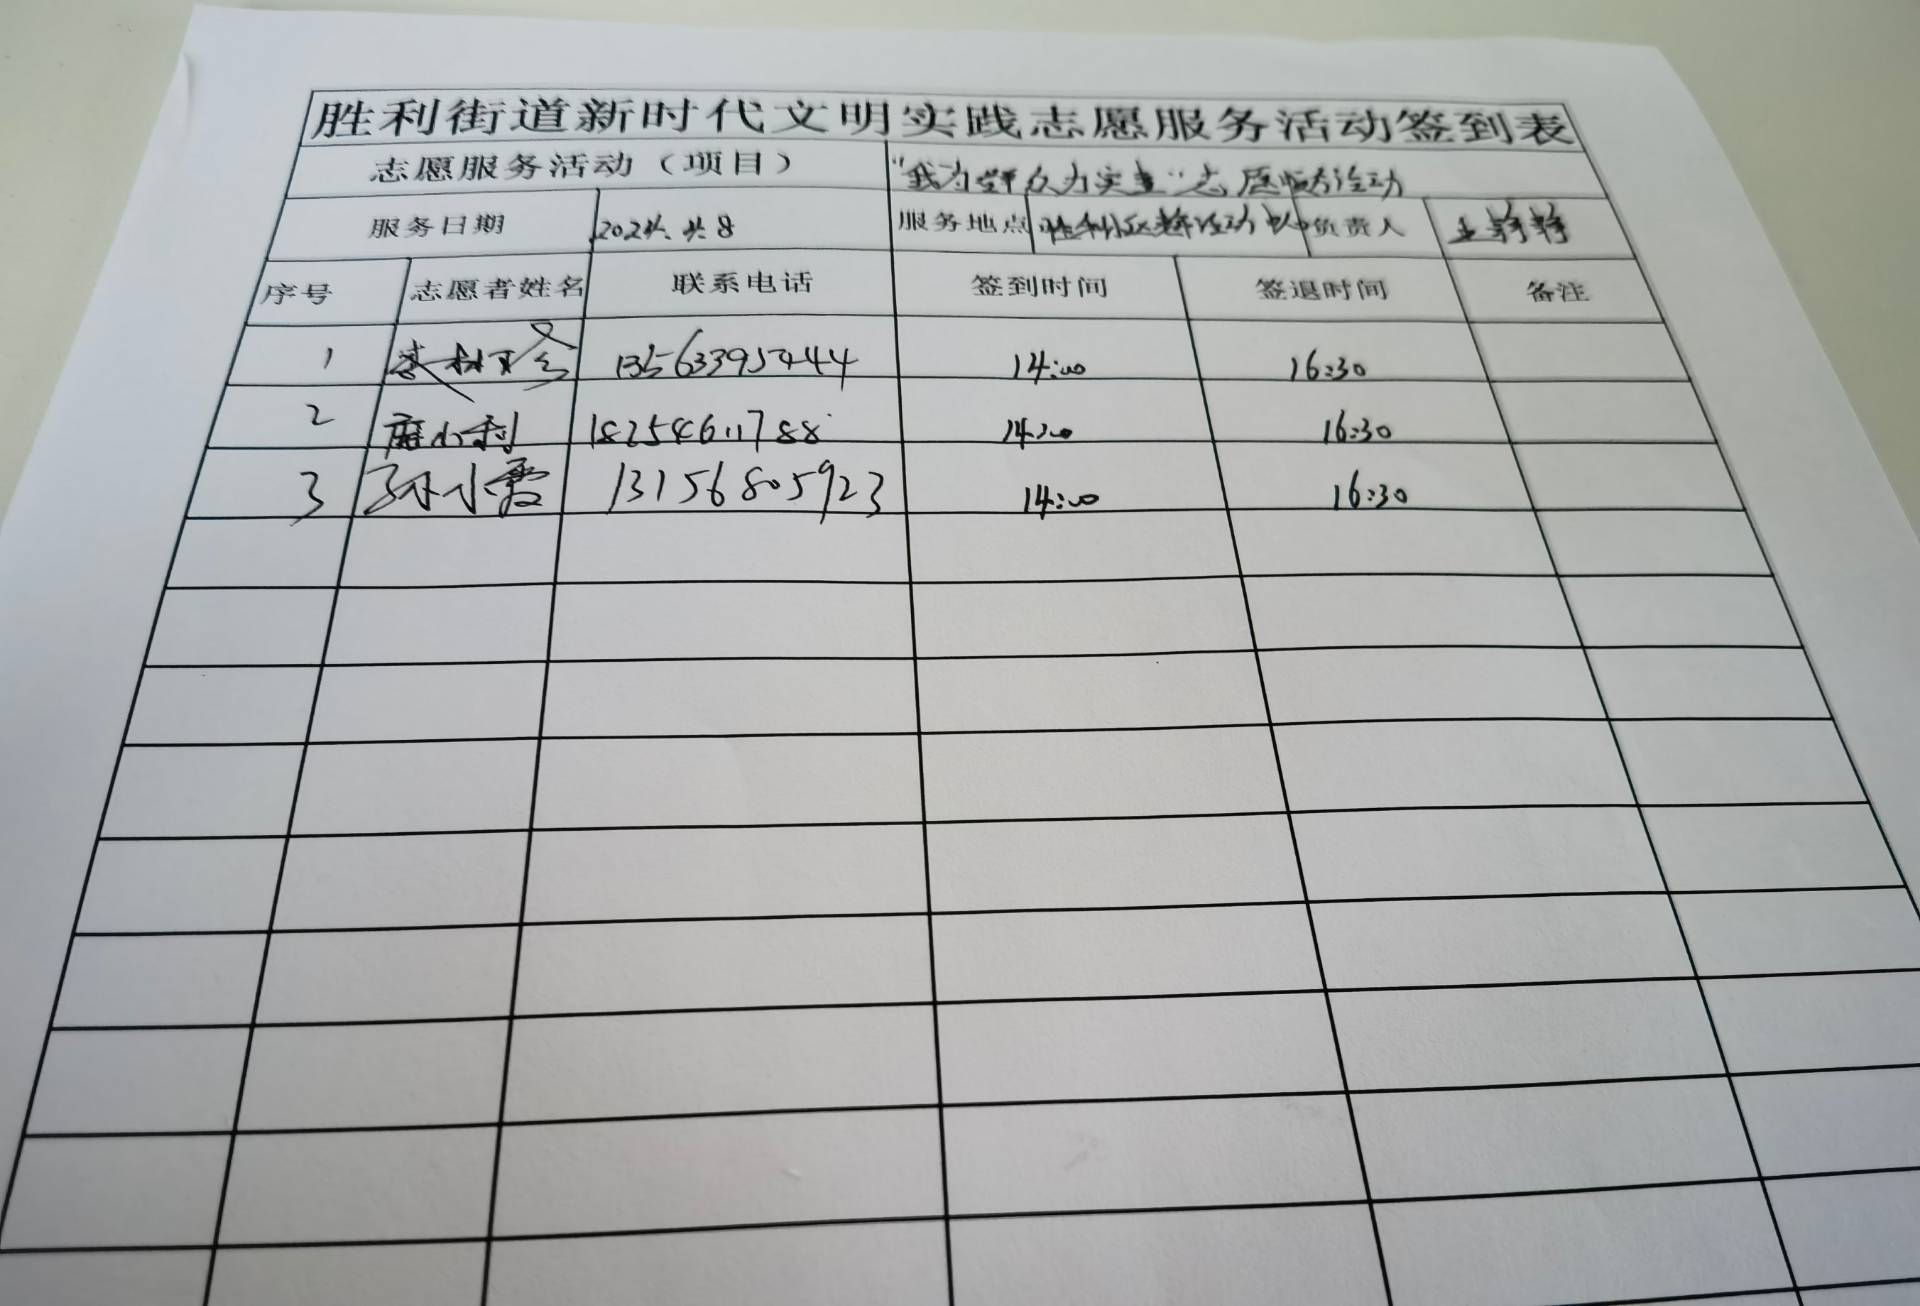 胜利街道新时代文明实践志愿服务活动签到表
志愿服务活动（项目） "我为群众办实事"志愿服务活动
服务日期 服务地点 胜利社区老年活动中心 负责人 王静静
序号 志愿者姓名 联系电话 签到时间 签退时间 备注
1 14:00 16:30
2 麻小利 18254611788 14:00 16:30
3 孙小霞 13156805923 14:00 16:30